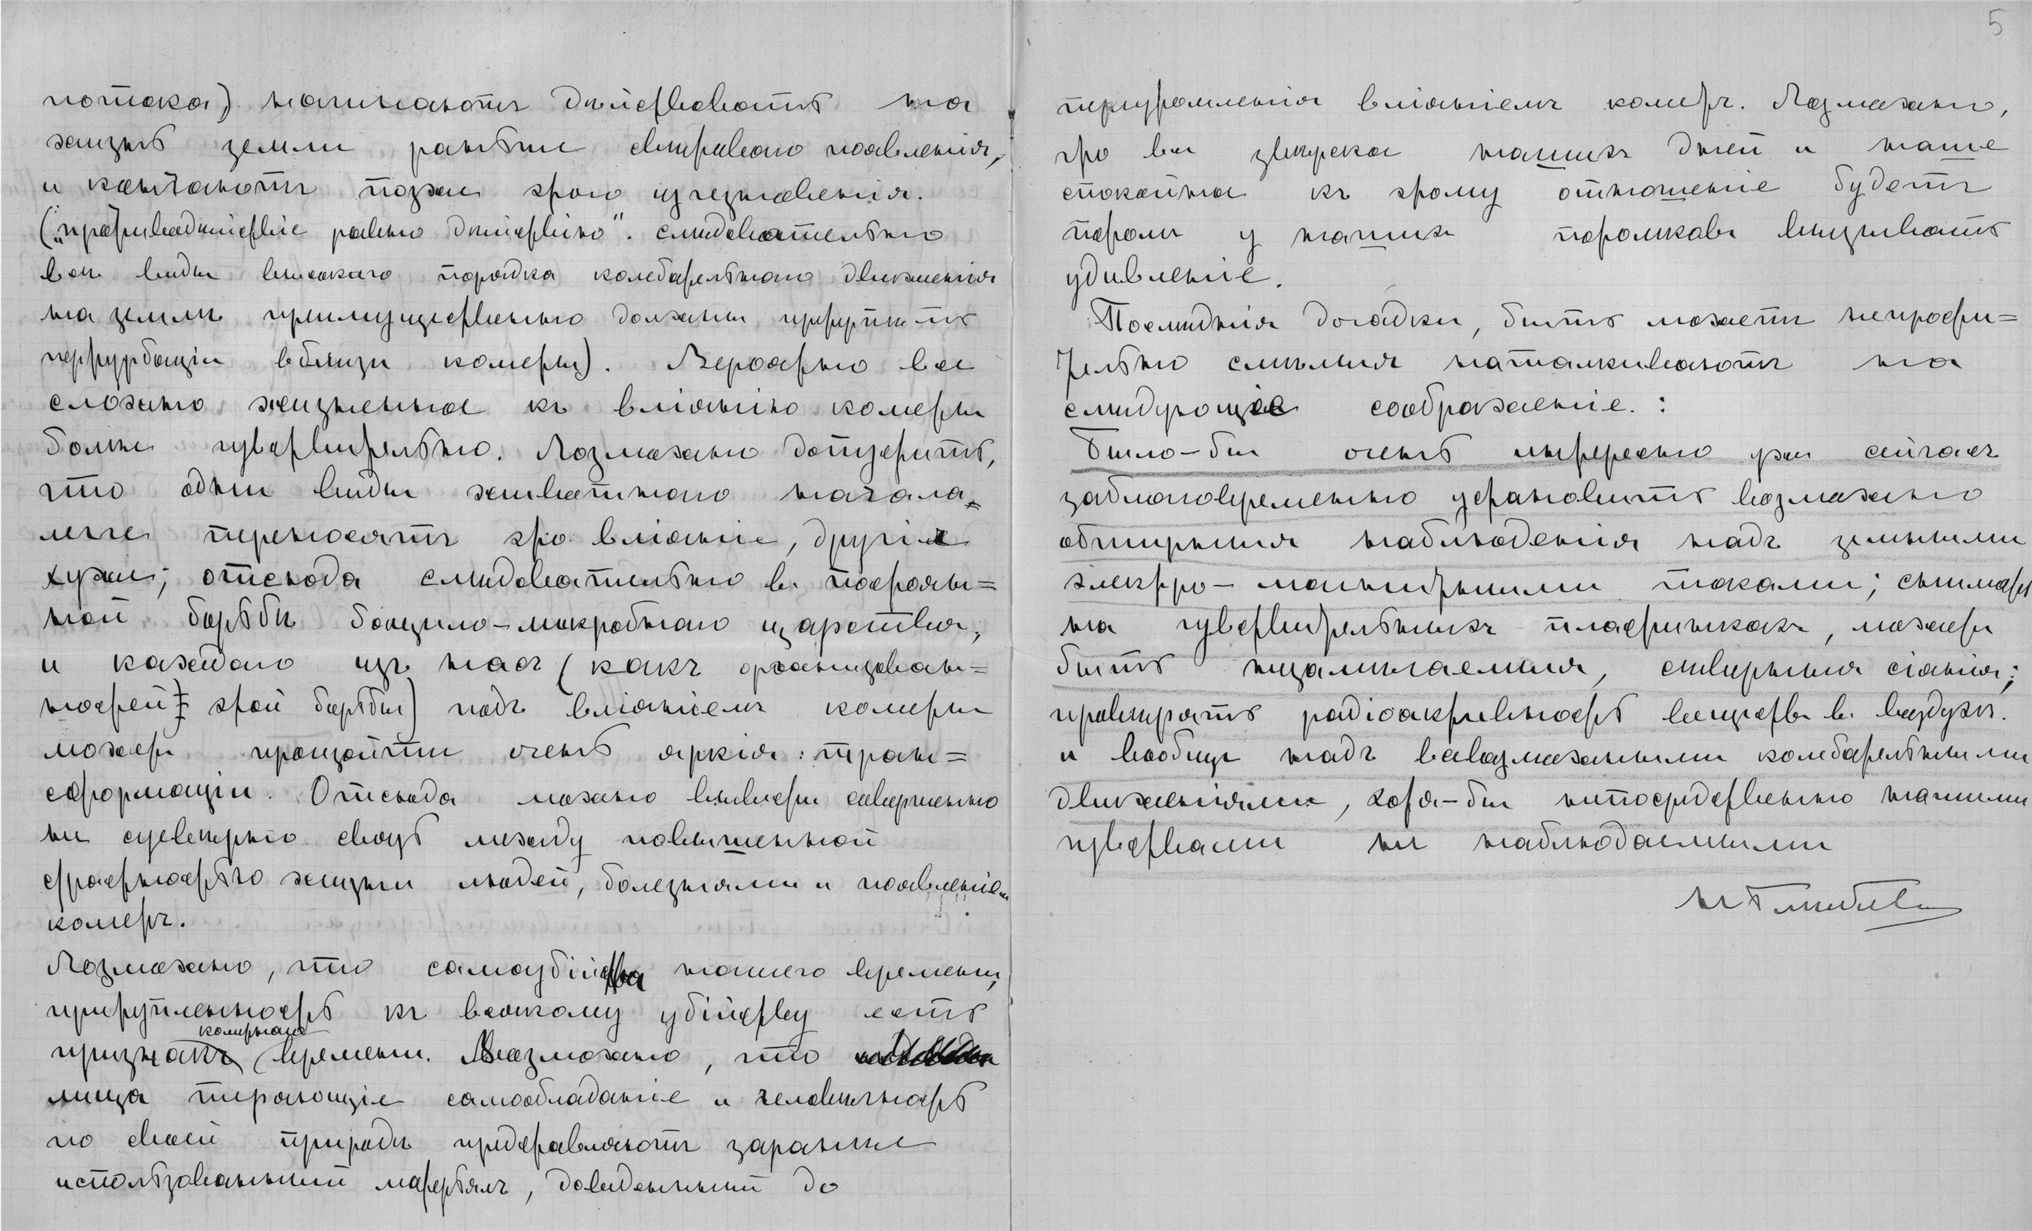 потока) начинаютъ дѣйствовать на
жизнь земли ранѣе свѣтоваго появленія,
и кончаютъ позже этого изчезновенія.
(„противодѣйствіе равно дѣйствію“. слѣдовательно
все виды высокаго порядка колебательнаго движенія
на землѣ преимущественно должны претерпѣть
пертурбаціи вблизи кометы). Вероятно все
сложно жизненное къ вліянію кометы
болѣе чувствительно. Возможно допустить,
что одни виды животнаго начала
легче переносятъ это вліяніе, другіе
хуже; отсюда слѣдовательно въ постоян=
ной борьбѣ бацило-микробнаго царства,
и каждаго изъ насъ (какъ организован=
ностей этой борьбы) подъ вліяніемъ кометы
можетъ произойти очень яркія транс=
формаціи. Отсюда можно вывести совершенно
не суевѣрно связь между повышенной
страстностью жизни людей, болезнями и появленіем
кометъ.
Возможно, что самоубійства нашего времени,
притупленность къ всякому убійству есть
кометнаго
признакъ времени. Возможно, что
лица теряющіе самообладаніе и человѣчность
по своей природѣ представляютъ заранѣе
использованный матерьялъ, доведенный до
5
переутомленія вліяніемъ кометъ. Возможно,
это все звѣрское нашихъ дней и наше
спокойное къ этому отношеніе будетъ
потомъ у нашихъ потомковъ вызывать
удивленіе.
Послѣднія догадки, быть можетъ непрости=
тельно смѣлыя наталкиваютъ на
слѣдующее соображеніе:
Было-бы очень интересно уже сейчасъ
заблаговременно установить возможно
обширныя наблюденія надъ земными
электро-магнитными токами; снимать
на чувствительныхъ пластинкахъ, можетъ
быть незамѣчаемыя, сѣверныя сіянія;
провѣрять радіоактивность веществъ въ воздухѣ.
и вообще надъ всевозможными колебательными
движеніями, хотя-бы непосредственно нашими
чувствами не наблюдаемыми